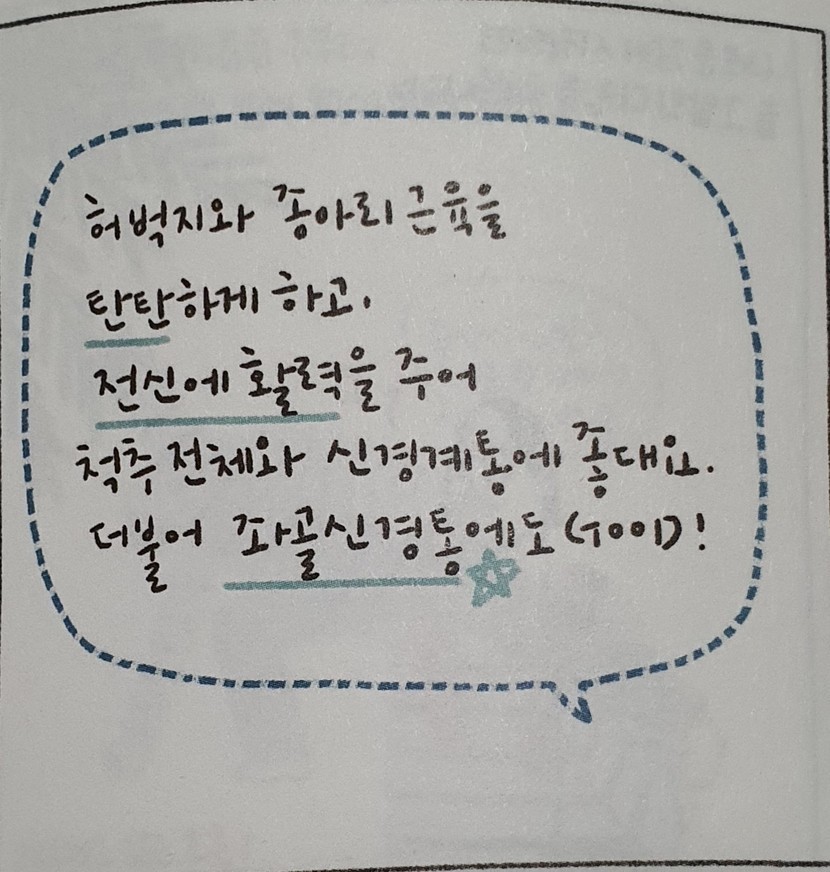 허벅지와 종아리 근육을
탄탄하게 하고.
전신에 활력을 주어
척추 전체와 신경계통에 좋대요.
더불어 좌골신경통에도 GOOD!